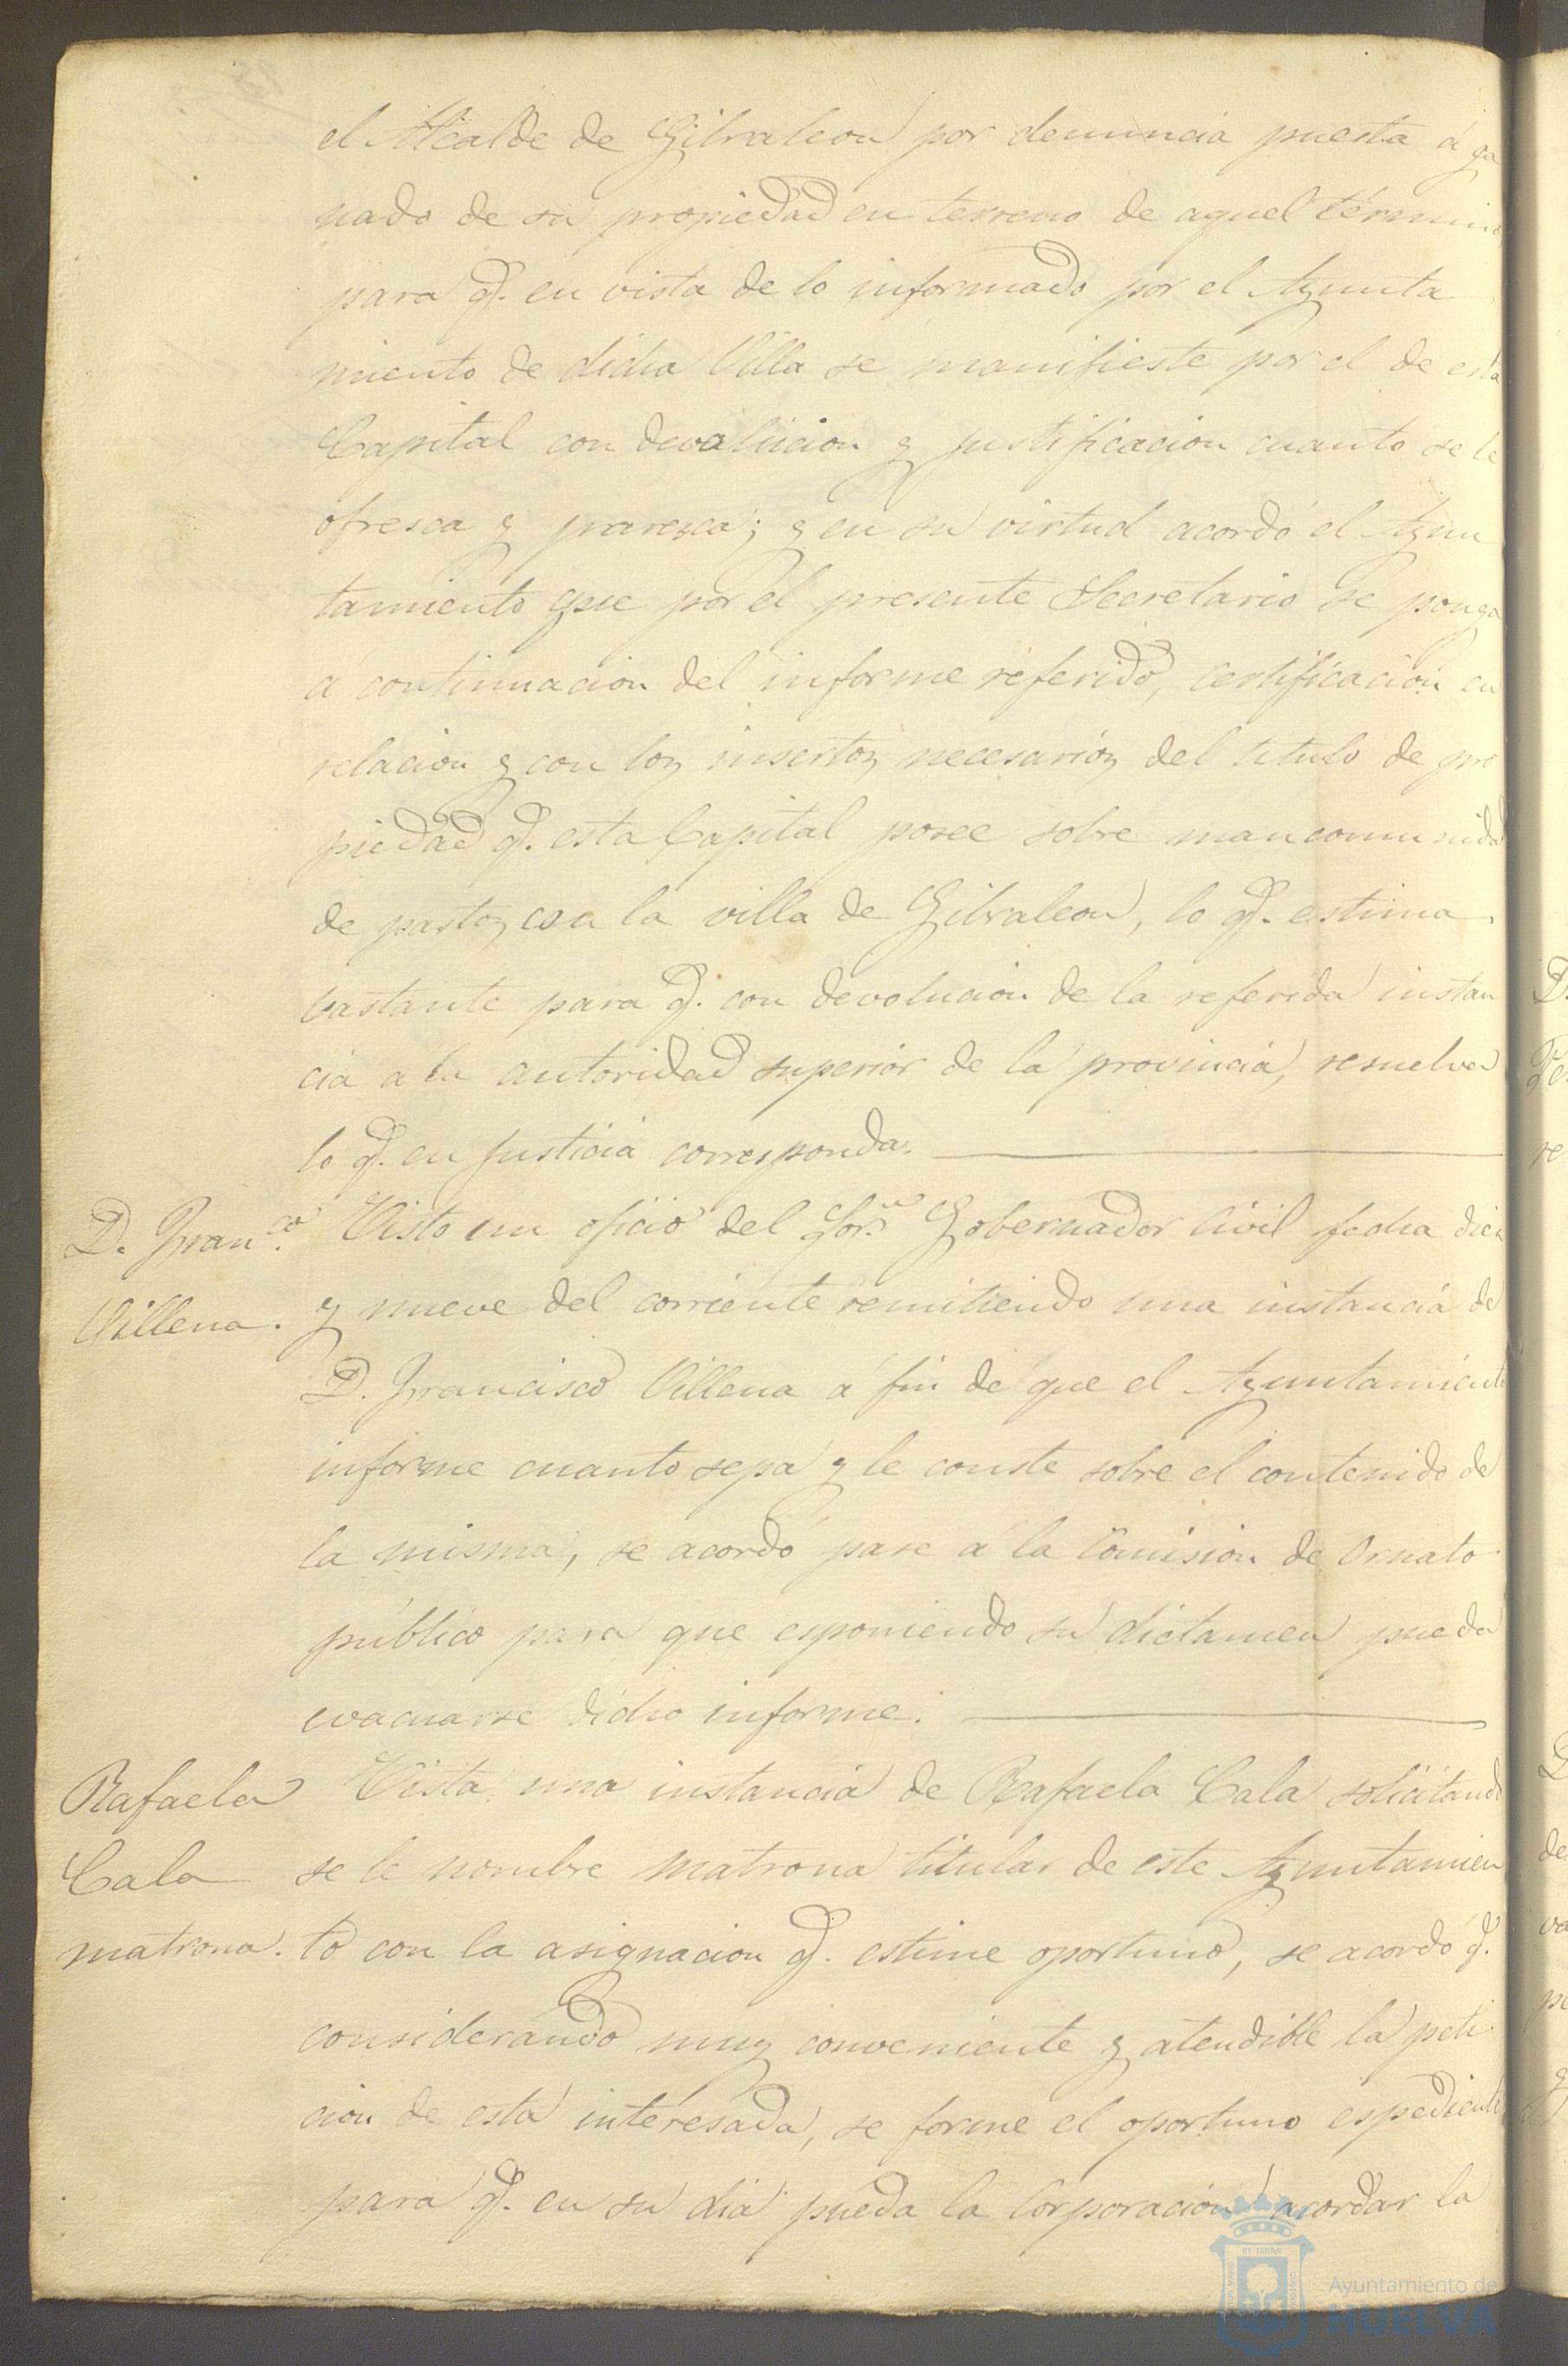 el Alcalde de Gibraleon por denuncia puesta á ga
nado de su propiedad en terreno de aquel término
para q. en vista de lo informado por el Ayunta
miento de dicha Villa se manifieste por el de esta
Capital con devolucion y justificacion cuanto se le
ofresca y paresca; y en su virtud acordó el Ayun
tamiento que por el presente Secretario se ponga
á continuacion del informe referido, certificacion en
relacion y con los insertos necesarios del titulo de pro
piedad q. esta Capital posee sobre mancomunidad
de pastos con la villa de Gibraleon, lo q. estima
bastante para q. con devolucion de la referida instan
cia a la autoridad superior de la provincia, resuelva
lo q. en justicia corresponda.
D. Fran.co
Villena.
Visto un oficio del Sor. Gobernador Civil fecha diez
y nueve del corriente remitiendo una instancia de
D. Francisco Villena á fin de que el Ayuntamiento
informe cuanto sepa y le conste sobre el contenido de
la misma, se acordó pase á la Comision de Ornato
público para que esponiendo su dictamen pueda
evacuarse dicho informe.
Rafaela
Cala
matrona.
Vista una instancia de Rafaela Cala solicitando
se le nombre matrona titular de este Ayuntamien
to con la asignacion q. estime oportuno, se acordó q.
considerando muy conveniente y atendible la peti
cion de esta interesada, se forme el oportuno espediente
para q. en su dia pueda la Corporacion acordar la
Ayuntamiento de
HUELVA